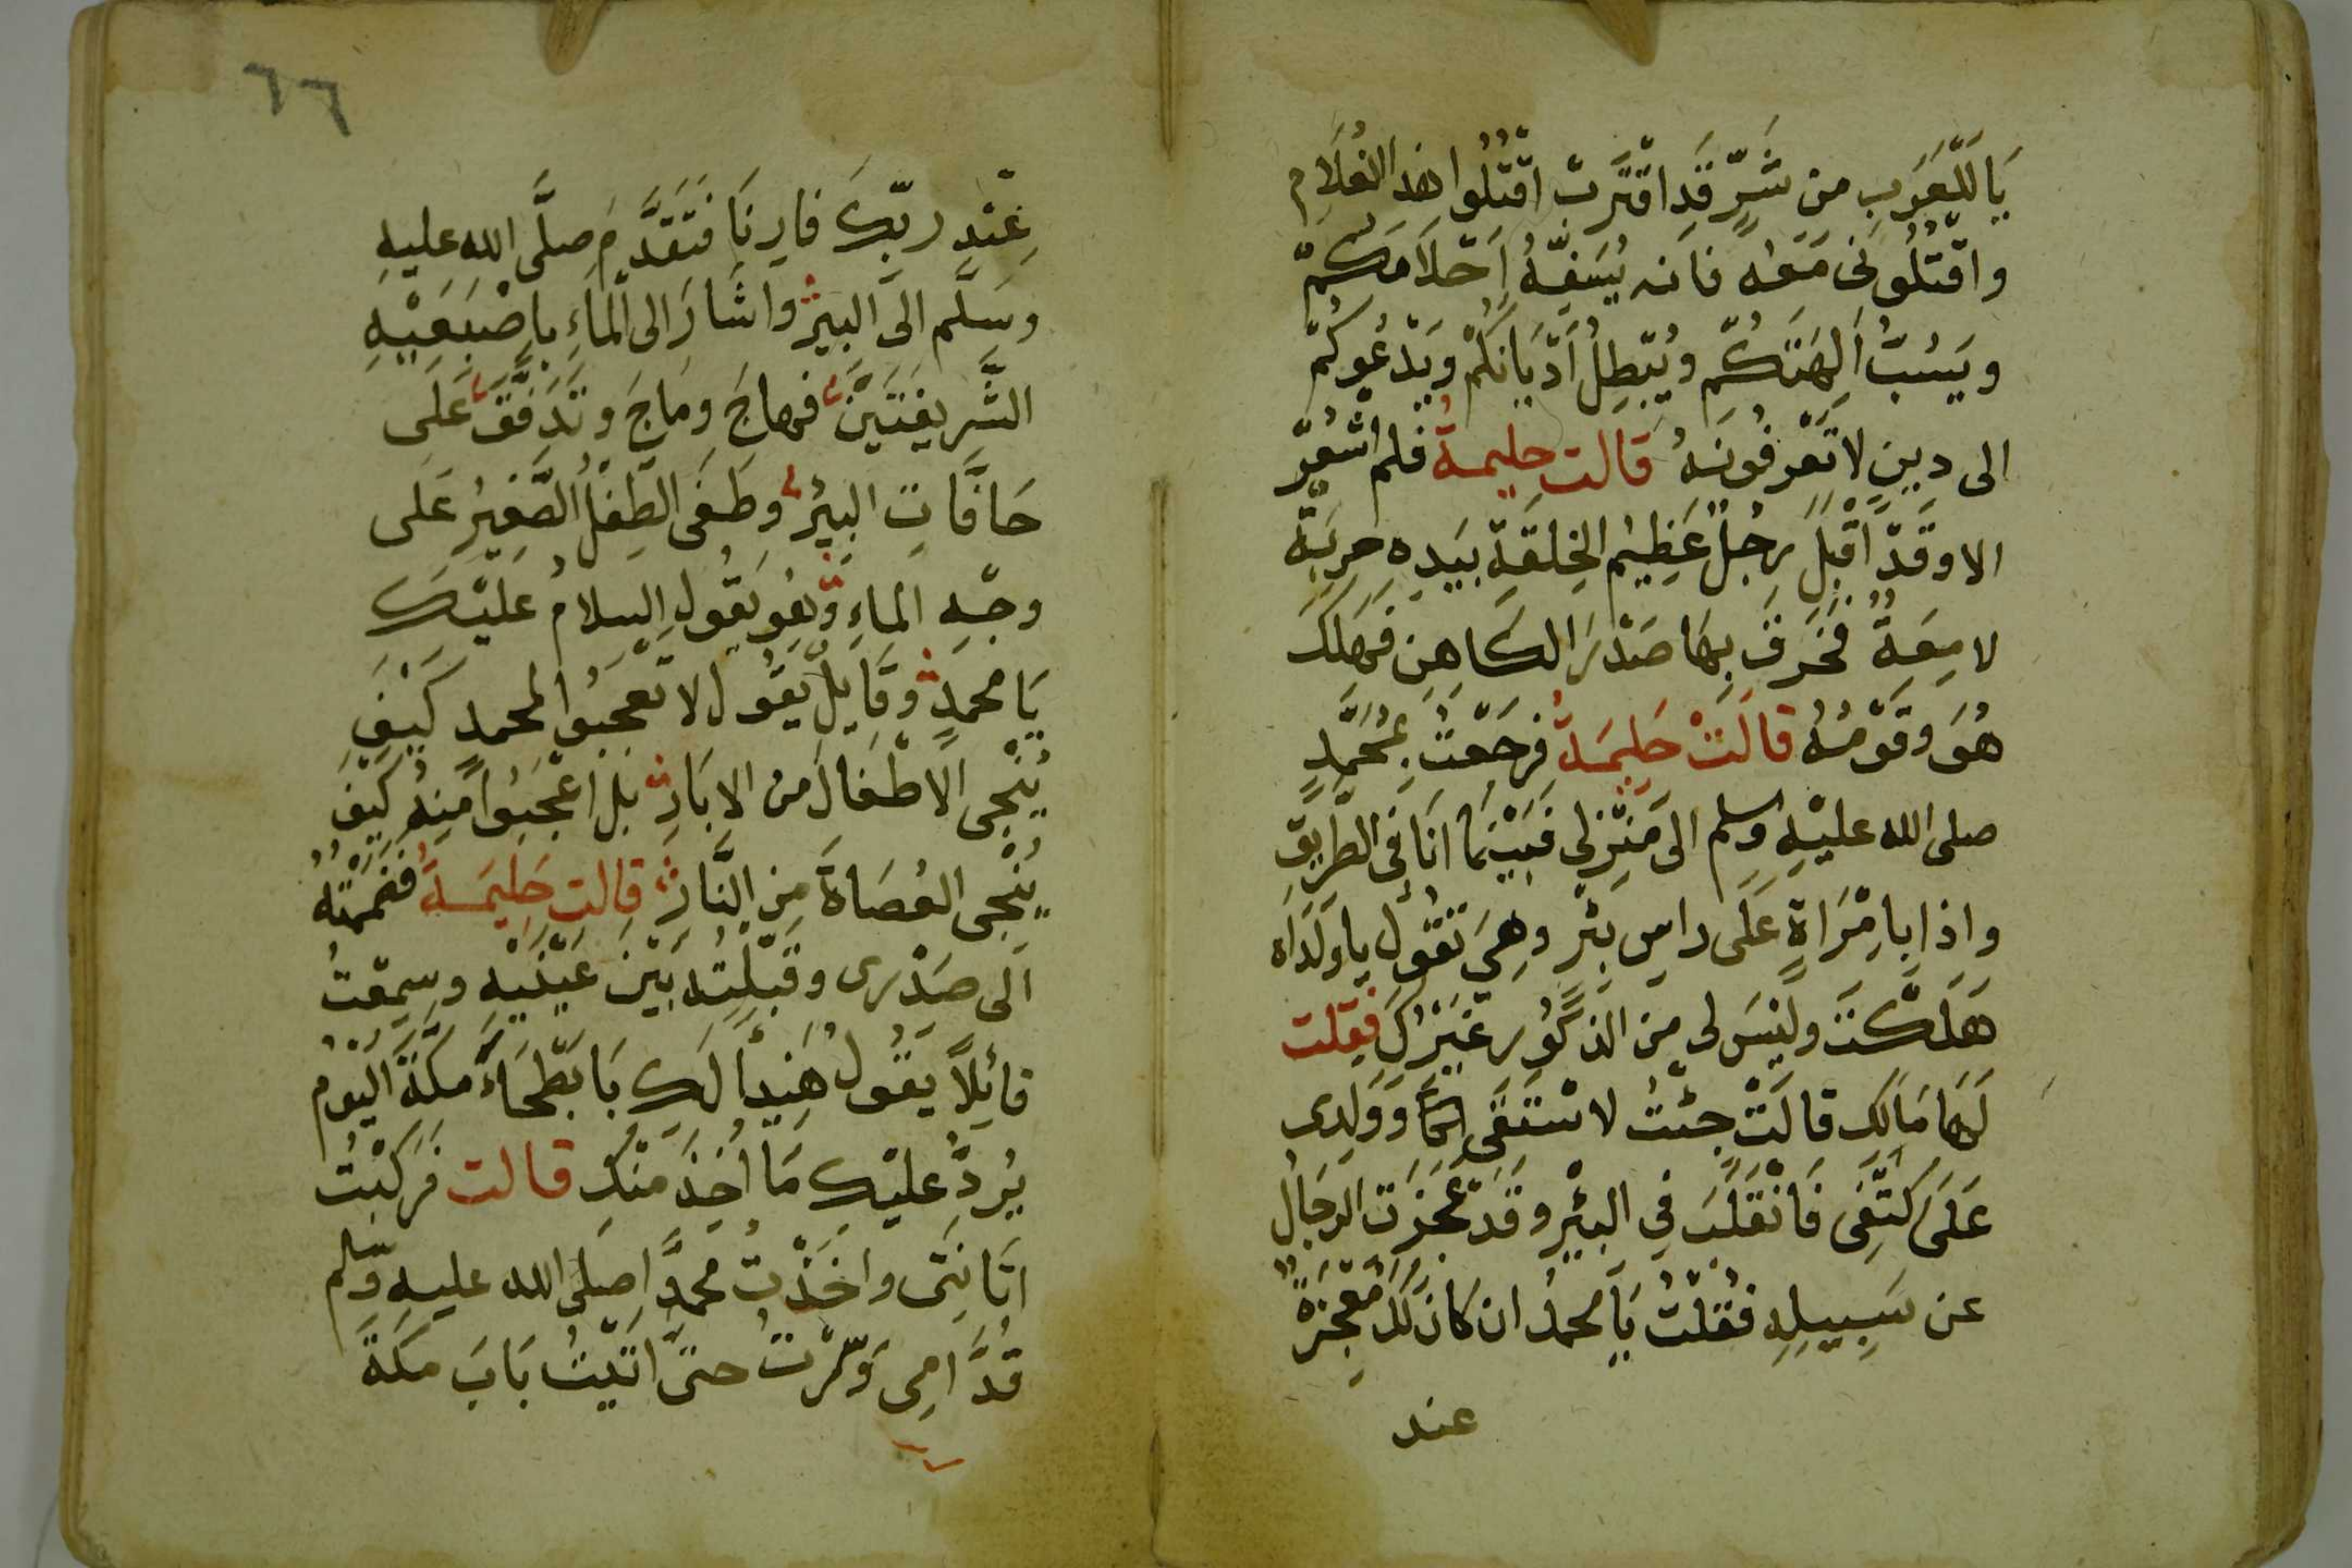 يَا لَلْعَرَبِ من شَرٍّ قَدِ اقْتَرَبَ اقْتُلُوا هٰذا الغُلَامِ
واقْتُلُونى مَعَه فانه يُسَفِّهُ اَحْلَامَكُمْ
ويَسُبُّ اٰلِهَتَكُمْ ويُبْطِلُ اَدْيَانَكُمْ ويَدْعُوكُمْ
الى دِينٍ لا تَعْرِفُونَهُ قالت حليمةُ فلم اشْعُرْ
الا وقَدْ اَقْبَلَ رَجُلٌ عَظِيمُ الخِلقَةِ بيَدِه حربَةٌ
لامِعَةٌ فخَرَقَ بِهَا صَدْرَ الكَاهِنِ فهَلَكَ
هُوَ وقَوْمُهُ قالَتْ حَلِيمَةُ فرجَعْتُ بمُحَمَّدٍ
صلى الله عليْهِ وسلم الى مَنْزِلى فبَيْنَمَا انَا فى الطَّرِيقِ
واذا بامْرَاةٍ عَلَى راسِ بئْرٍ وهِيَ تقُولُ يا ولَدَاه
هَلَكْتَ وليْسَ لى من الذكُورِ غَيْرُكَ فقلت
لَهَا مَالَكِ قالَتْ جئْتُ لاسْتَقَى المآ وَوَلَدِى
عَلَى كَتِفِى فَانْقَلَبَ فِي البئْرِ وقَدْ عَجَزَتِ الرجَالُ
عن سَبِيلِهِ فقُلْتُ يَا محمدُ ان كَانَ لَكَ مُعْجِزَةٌ
عند
٦٦
عِنْدَ ربّكَ فارِنَا فتَقَدَّمَ صلَّى الله عليهِ
وسَلَّم الىَ البيرِ واشَارَ الى المَاءِ باصْبَعَيْهِ
الشَّرِيفَتَيْنِ فهاجَ ومَاجَ وتَدَفَّقَ عَلى
حَافَّاتِ البيرِ وطَفَى الطِفلُ الصَّغِيرُ عَلى
وجْهِ الماءِ وهُو يقُول السلامُ عليْكَ
يَا محمدٍ وقَايِلٌ يقُول لا تعجبُوا لمحمدٍ كَيْفَ
يُنْجِى الاطْفَالَ من الابَارِ بل اعْجَبُوا مِنهُ كَيْفَ
يُنْجِى العُصَاةَ مِنَ النَّارِ قالت حَلِيمَةُ فضَمَمْتُهُ
الى صَدْرِى وقبَّلْتُه بَيْنَ عَيْنَيْهِ وسمِعْتُ
قائِلاً يقُولُ هَنِيأً لَكِ يَا بَطْحَاءَ مكَّةَ اليَوْم
يُرَدُّ عليْكِ مَا اُخِذَ مِنْكِ قالت فرَكِبْتُ
اتَانِتى واخَذْتُ محمَّدًا صلى الله عليهِ وسلم
قدَّامِى وسِرْتُ حتىَّ اتَيْتُ بَابَ مكَةَ